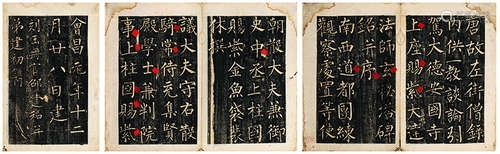 唐故左街僧錄
內供奉三教談論引
駕大德安國寺
上座賜紫大達
法師玄秘塔碑
銘并序
南西道都團練
觀察處置等使
朝散大夫兼御
史中丞上柱國
賜紫金魚袋裴
休撰
議大夫守右散
騎常侍充集賢
殿學士兼判院
事上柱國賜紫
會昌元年十二
月廿八日建
刻玉冊官邵建和并
弟建初鐫